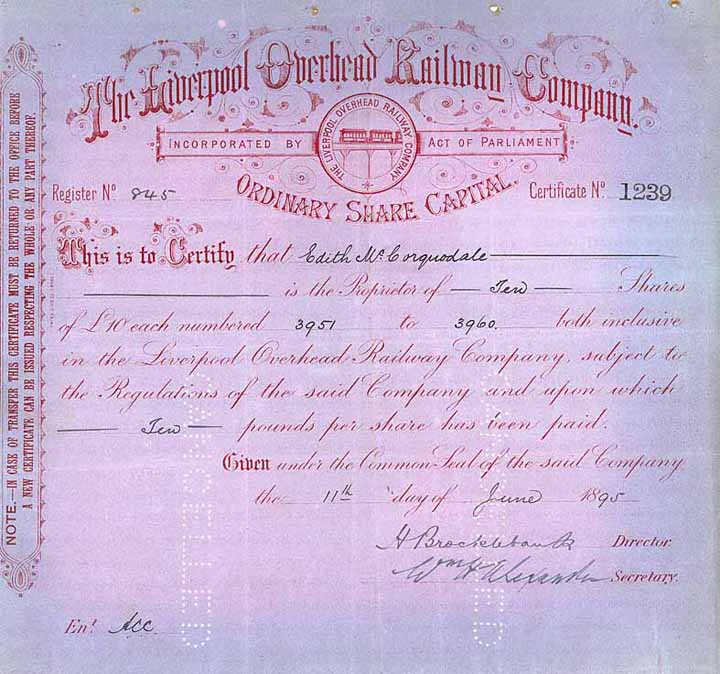 The Liverpool Overhead Railway Company.
INCORPORATED BY ACT OF PARLIAMENT
THE LIVERPOOL OVERHEAD RAILWAY COMPANY
ORDINARY SHARE CAPITAL.
Register No 845
Certificate No 1239
This is to Certify that Edith McCorquodale
is the Proprietor of Ten Shares
of £10 each numbered 3951 to 3960 both inclusive
in the Liverpool Overhead Railway Company, subject to
the Regulations of the said Company and upon which
Ten pounds per share has been paid.
Given under the Common Seal of the said Company
the 11th day of June 1895
H Brocklebank Director.
Wm H Alexander Secretary.
Ent. Acc
NOTE.—IN CASE OF TRANSFER THIS CERTIFICATE MUST BE RETURNED TO THE OFFICE BEFORE
A NEW CERTIFICATE CAN BE ISSUED RESPECTING THE WHOLE OR ANY PART THEREOF.